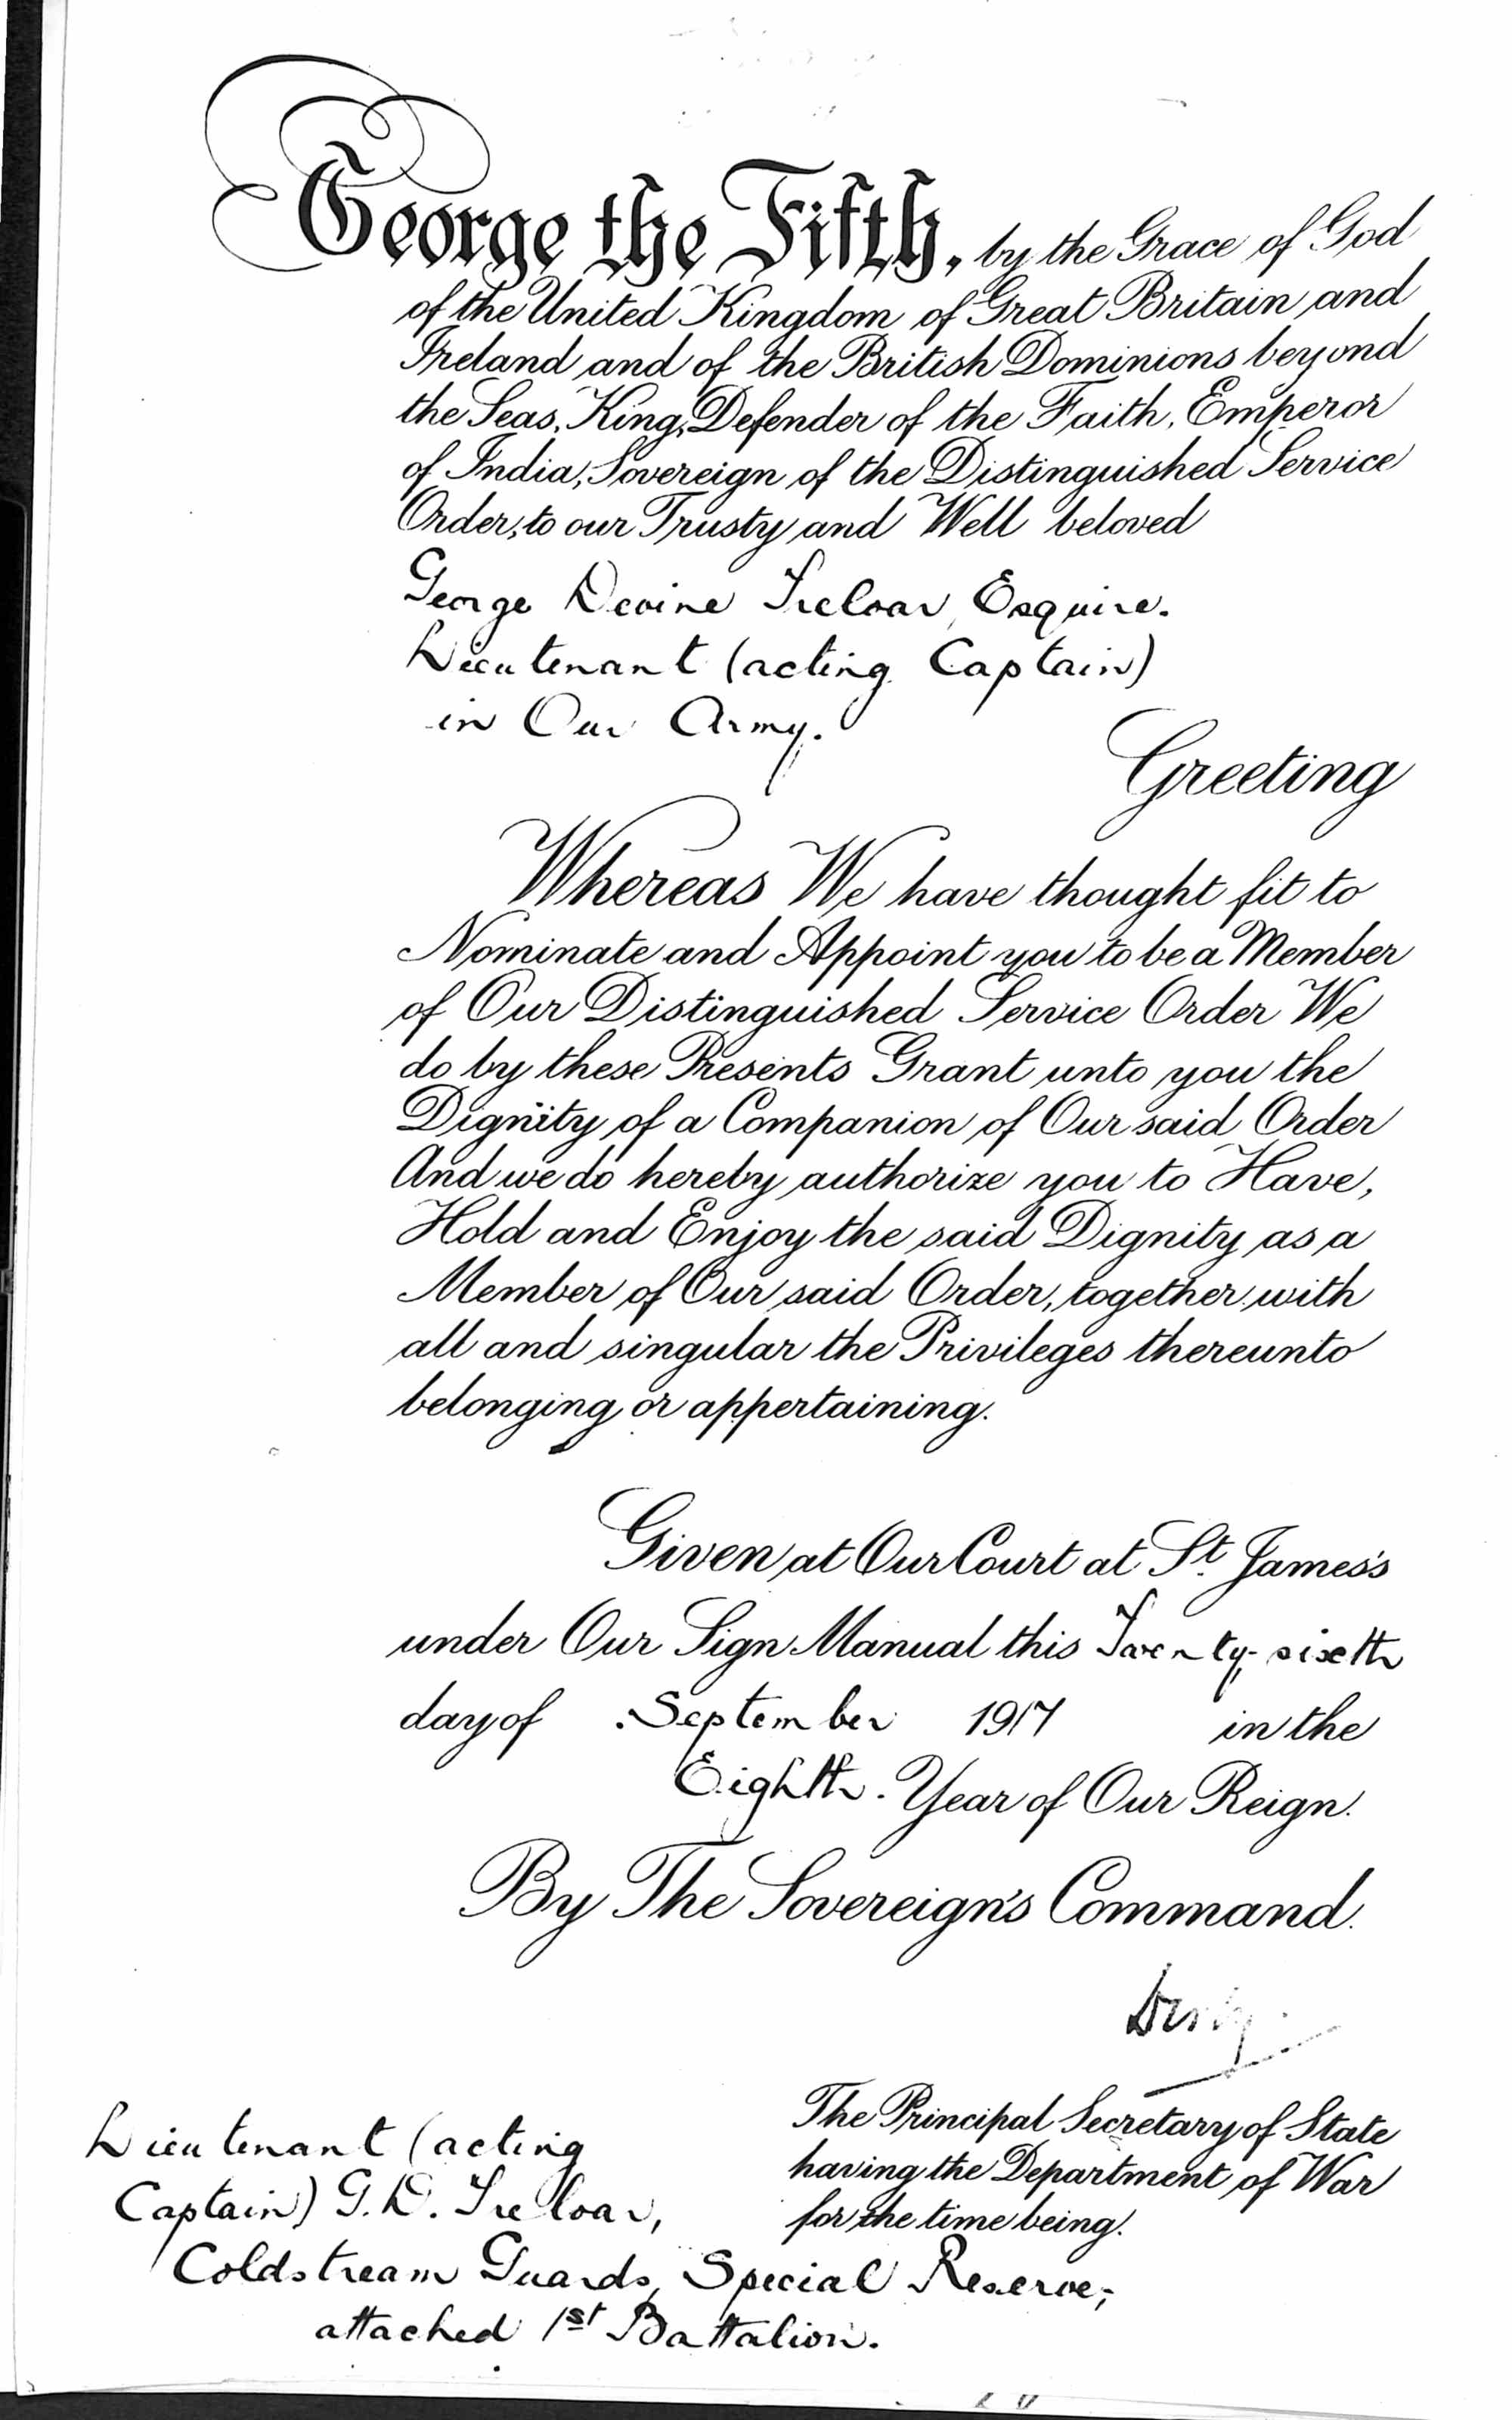 George the Fifth, by the Grace of God
of the United Kingdom of Great Britain and
Ireland and of the British Dominions beyond
the Seas, King, Defender of the Faith, Emperor
of India, Sovereign of the Distinguished Service
Order, to our Trusty and Well beloved
George Devine Treloar, Esquire.
Lieutenant (acting Captain)
in Our Army.
Greeting
Whereas We have thought fit to
Nominate and Appoint you to be a Member
of Our Distinguished Service Order We
do by these Presents Grant unto you the
Dignity of a Companion of Our said Order
And we do hereby authorize you to Have,
Hold and Enjoy the said Dignity as a
Member of Our said Order, together with
all and singular the Privileges thereunto
belonging or appertaining.
Given at Our Court at St. James's
under Our Sign Manual this Twenty-sixth
day of September 1917 in the
Eighth Year of Our Reign.
By The Sovereign's Command.
Derby
The Principal Secretary of State
having the Department of War
for the time being.
Lieutenant (acting
Captain) G.D. Treloar,
Coldstream Guards, Special Reserve,
attached 1st Battalion.